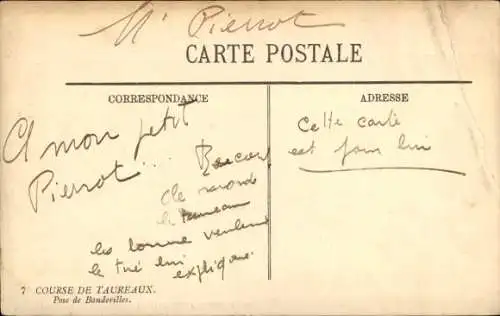 Mr Pierrot
CARTE POSTALE
CORRESPONDANCE
ADRESSE
A mon petit
Pierrot...
Cette carte
est pour lui
le taureau
les homme veulent
le tué lui
explique.
7 COURSE DE TAUREAUX.
Pose de Banderilles.